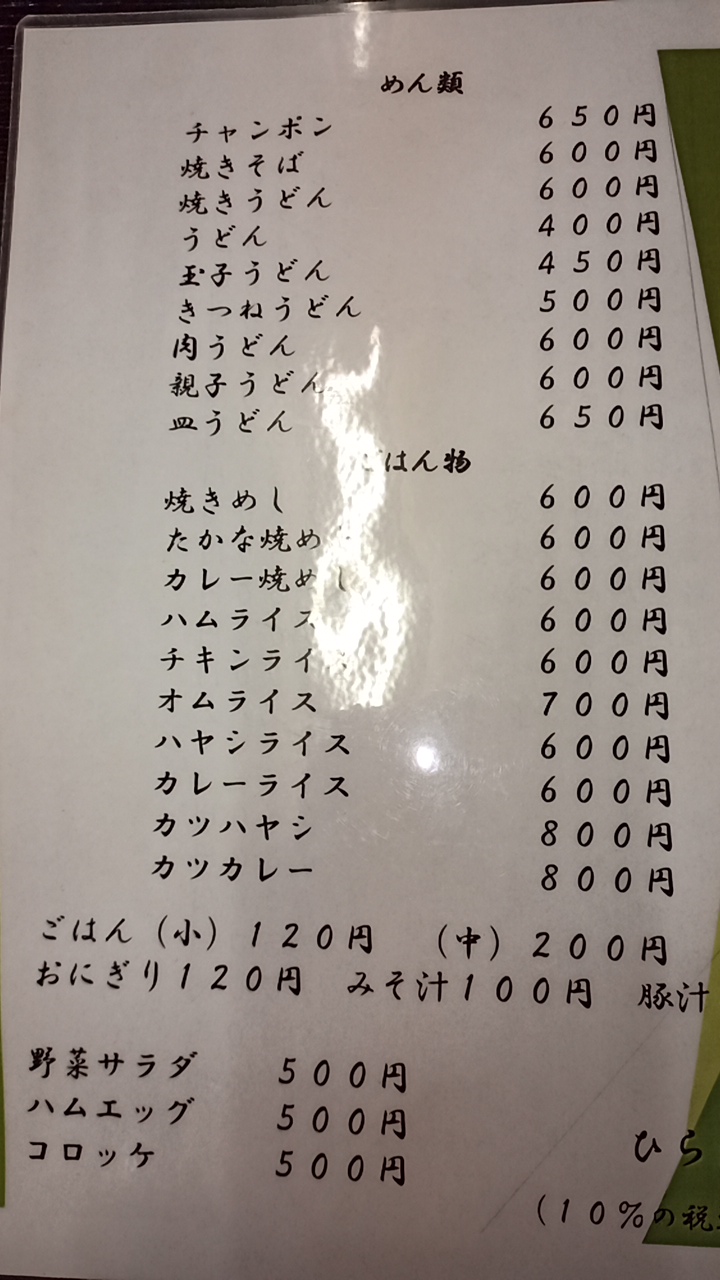 めん類
チャンポン 650円
焼きそば 600円
焼きうどん 600円
うどん 400円
玉子うどん 450円
きつねうどん 500円
肉うどん 600円
親子うどん 600円
皿うどん 650円
ごはん物
焼きめし 600円
たかな焼め 600円
カレー焼めし 600円
ハムライス 600円
チキンライ 600円
オムライス 700円
ハヤシライス 600円
カレーライス 600円
カツハヤシ 800円
カツカレー 800円
ごはん(小)120円 (中)200円
おにぎり120円 みそ汁100円 豚汁
野菜サラダ 500円
ハムエッグ 500円
コロッケ 500円
ひら
(10%の税